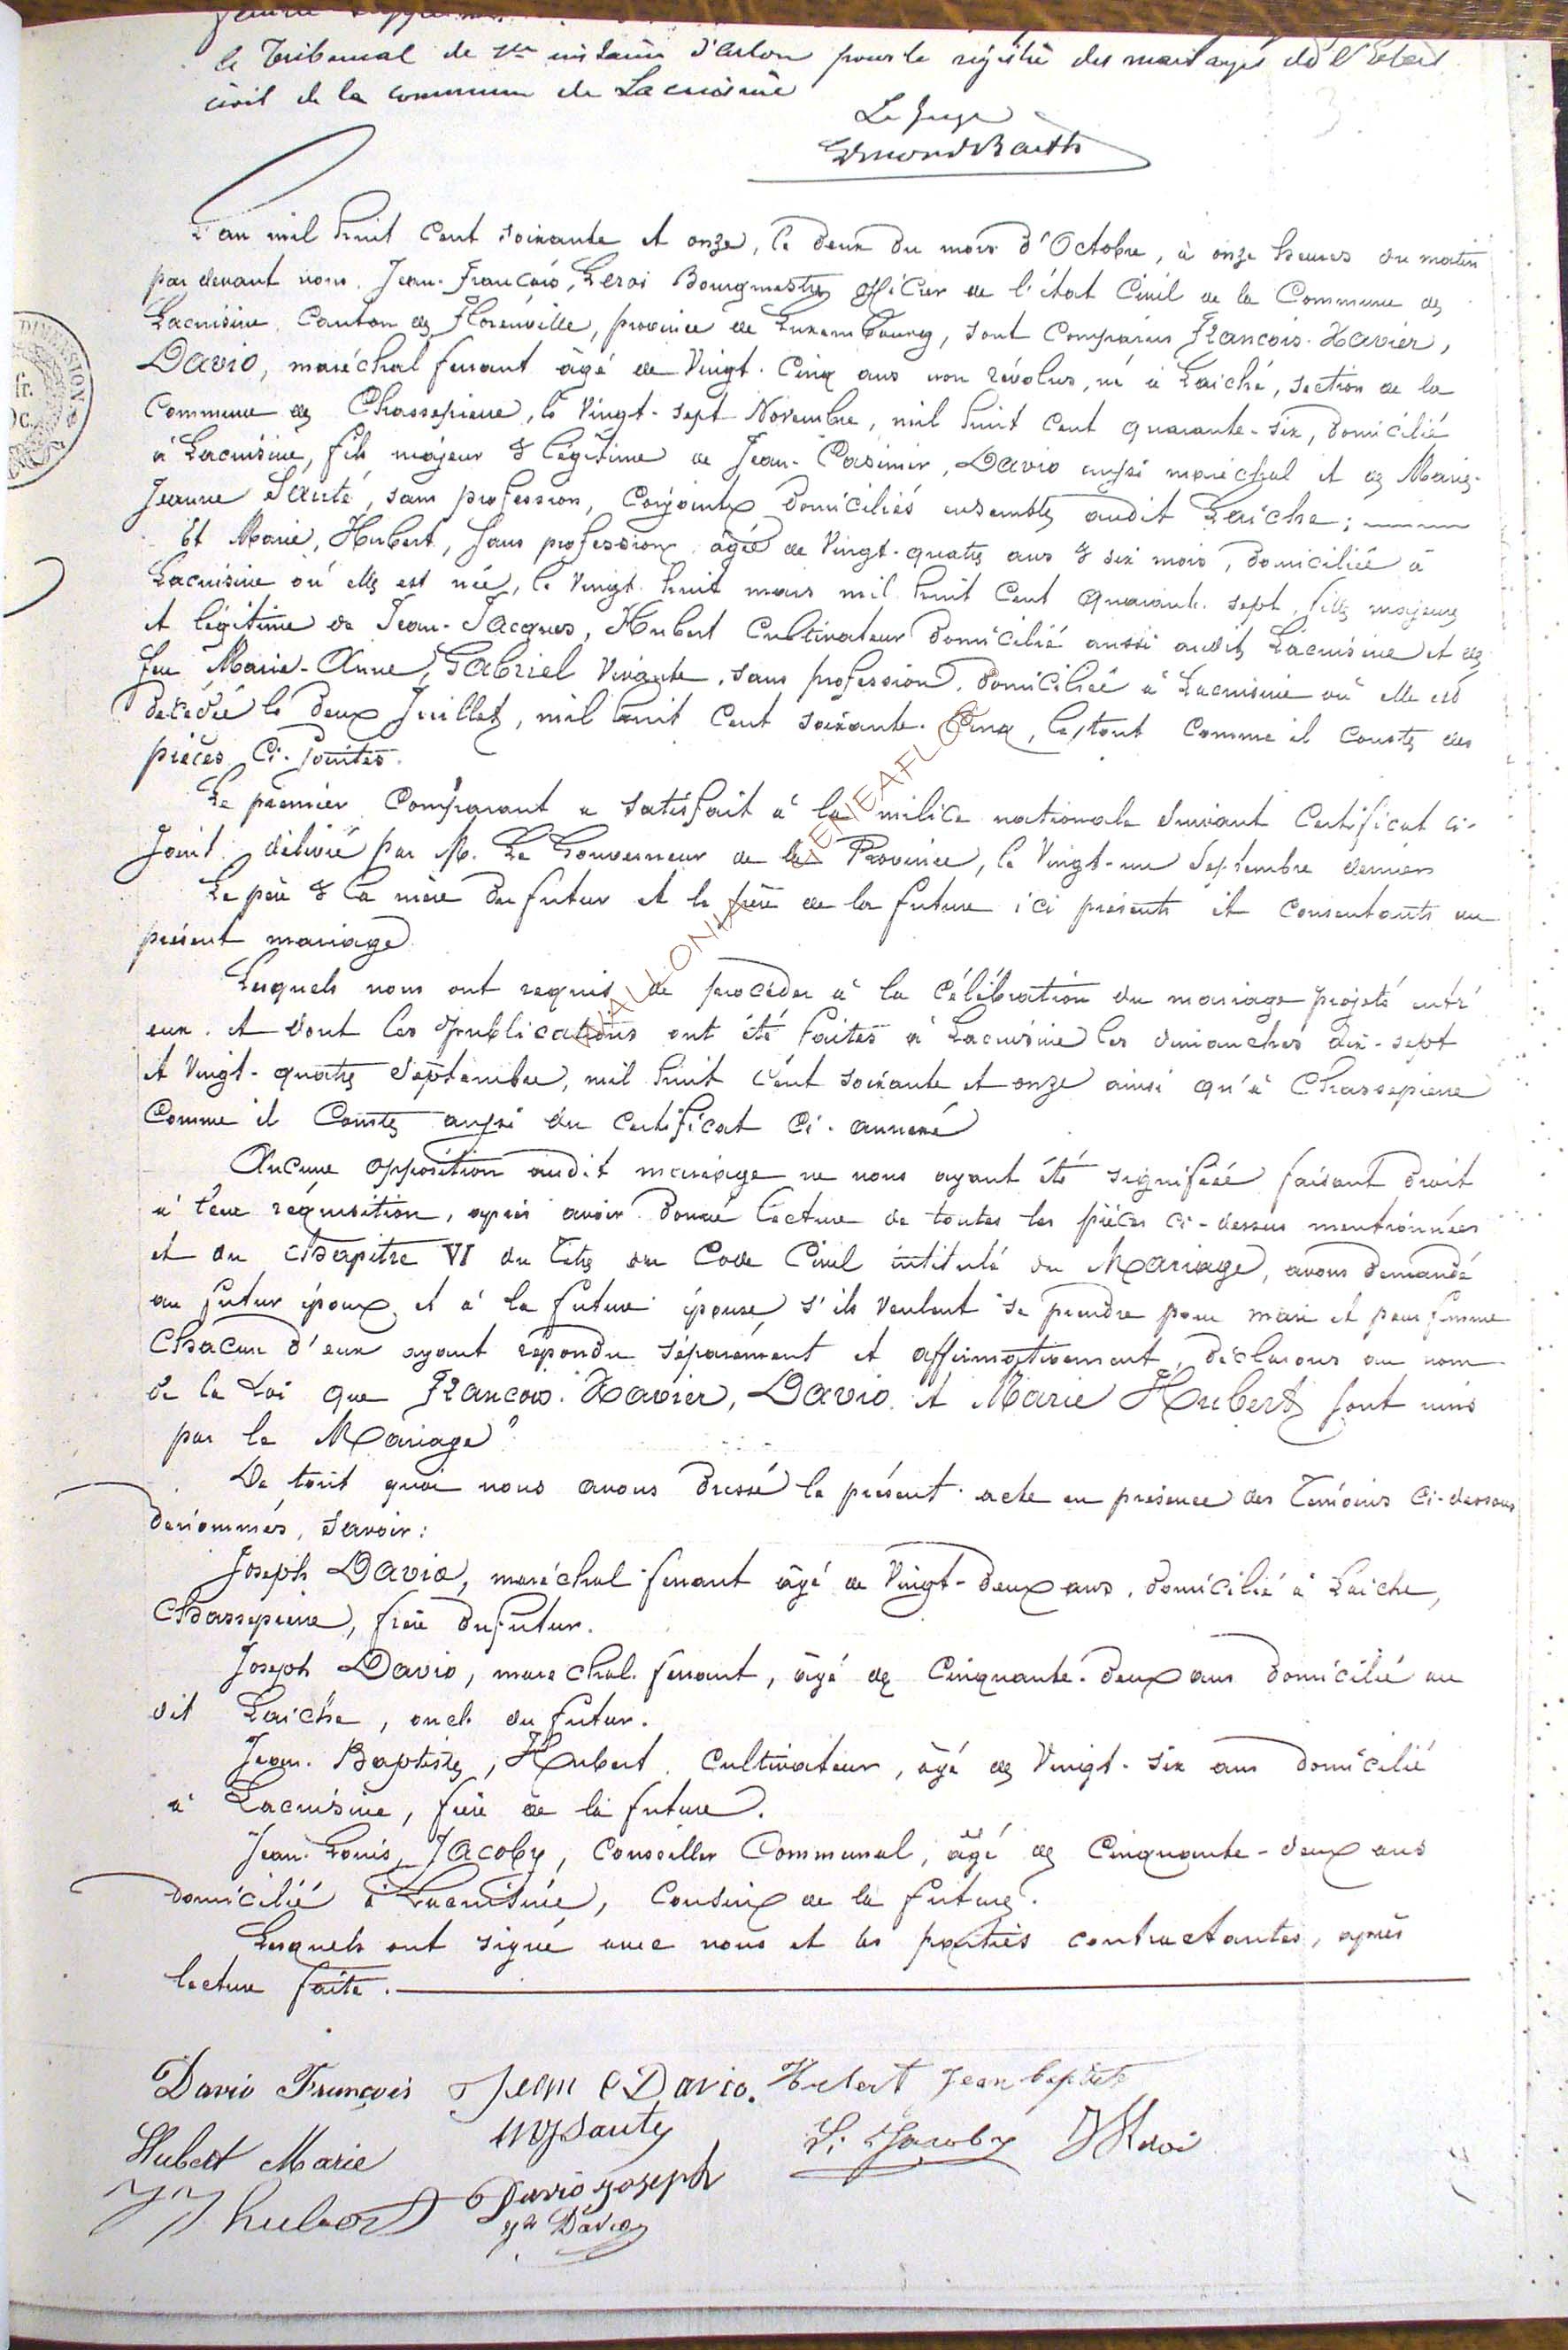 le Tribunal de 1re instance d'Arlon pour le registre des mariages de l'Etat
civil de la commune de Lacuisine
Le Juge
DIVISION
fr.
c.
L'an mil huit cent soixante et onze, le deux du mois d'Octobre, à onze heures du matin
par devant nous Jean-François, Leroi Bourgmestre officier de l'état Civil de la Commune de
Lacuisine Canton de Florenville, province de Luxembourg, sont comparus François-Xavier,
Davio, maréchal ferrant âgé de Vingt-Cinq ans non révolus, né à Laiche, section de la
Commune de Chassepierre, le Vingt-sept Novembre, mil huit cent quarante-six, domicilié
à Lacuisine, fils majeur & légitime de Jean-Casimir, Davio aussi maréchal et de Marie-
Jeanne Santé, sans profession, conjoints domiciliés ensemble audit Laiche;
Et Marie, Hubert, sans profession âgée de Vingt-quatre ans & six mois, domiciliée à
Lacuisine où elle est née, le Vingt-huit mars mil huit Cent quarante-sept, fille majeure
et légitime de Jean-Jacques, Hubert Cultivateur domicilié aussi audit Lacuisine et de
feu Marie-Anne, Gabriel Vivante, sans profession, domiciliée à Lacuisine où elle est
décédée le deux Juillet, mil huit cent soixante-Cinq, le tout comme il conste des
pièces Ci-jointes.
Le premier Comparant a satisfait à la milice nationale suivant Certificat ci-
Joint délivré par M. Le Gouverneur de la Province, le Vingt-un Septembre dernier
Le père & la mère du futur et le père de la future ici présents et consentants au
présent mariage
Lesquels nous ont requis de procéder à la célébration du mariage projeté entr'
eux et dont les publications ont été faites à Lacuisine les dimanches dix-sept
et Vingt-quatre Septembre, mil huit cent soixante et onze ainsi qu'à Chassepierre
Comme il Conste aussi du certificat Ci-annexé
Aucune opposition audit mariage ne nous ayant été signifiée faisant droit
à leur réquisition, après avoir donné lecture de toutes les pièces ci-dessus mentionnées
et du Chapitre VI du Titre du Code Civil intitulé du Mariage, avons demandé
au futur époux et à la future épouse s'ils veulent se prendre pour mari et pour femme
Chacun d'eux ayant répondu séparément et affirmativement, déclarons au nom
de la Loi que François-Xavier, Davio et Marie Hubert sont unis
par le Mariage
De tout quoi nous avons dressé le présent acte en présence des Témoins Ci-dessous
dénommés, savoir:
Joseph Davio, maréchal ferrant âgé de Vingt-deux ans, domicilié à Laiche,
Chassepierre, frère du futur.
Joseph Davio, maréchal ferrant, âgé de Cinquante-deux ans domicilié au
dit Laiche, oncle du futur.
Jean-Baptiste, Hubert Cultivateur, âgé de Vingt-six ans domicilié
à Lacuisine, frère de la future.
Jean-Louis, Jacoby, Conseiller Communal, âgé de Cinquante-deux ans
domicilié à Lacuisine, Cousin de la future.
Lesquels ont signé avec nous et les parties contractantes, après
lecture faite.
WALLONIA GENEAFLOR
Davio François Jean C Davio. Hubert Jean baptiste
Hubert Marie MJ Santé L. Jacoby JF Leroi
JJ hubert Davio Joseph
Davio